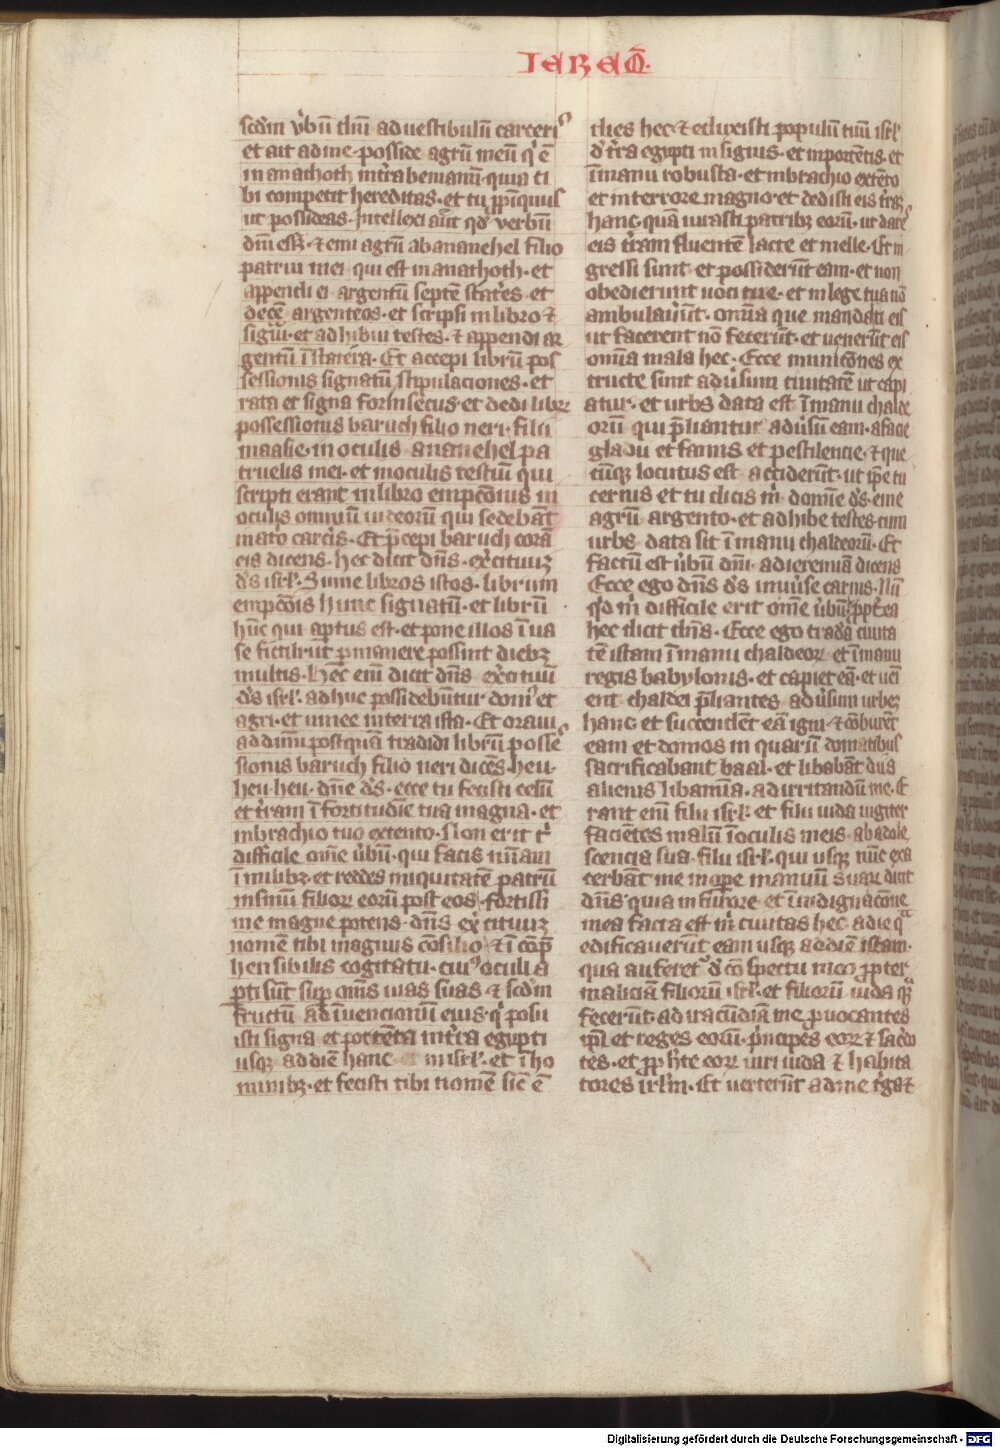 IEREM̅.
scd̓m v̓bū dn̄i ad uestibulū carceri᷒
et ait ad me· posside agrū meū q̓ ē
in anathoth in tr̓a beniamin· quia ti
bi competit hereditas· et tu p̱pīquus
ut possideas· Intellexi aūt qd̓ verbū
dn̄i eēt· ⁊ emi agrū ab ananehel filio
patrui mei qui est in anathoth· et
appendi ei argentū septē stat̓es et
decē argenteos· et scripsi in libro ⁊
sigui· et adhibui testes· ⁊ appendi ar
gentū ī statera· Et accepi librū pos
sessionis signatū stipulaciones· et
rata et signa forinsecus· et dedi libꝝ
possessionis baruch filio neri· filii
maasie· in oculis ananehel pa
truelis mei· et in oculis testiū qui
scripti erant in libro empcōnis in
oculis omniū iudeorū qui sedebāt
in at̓o carc̓is· Et p̄cepi baruch corā
eis dicens· hec dicit dn̄s· exercituuꝫ
d̓s isrł· Sume libros istos· librum
empcōis hunc signatū· et librū
hūc qui ap̱tus est· et pone illos ī ua
se fictili· ut p̱manere possint diebꝫ
multis· Hec enī dicit dn̄s ex̓cituū
d̓s isrł· adhuc possidebūtur dom᷒ et
agri· et uinee in terra ista· Et oraui
ad dn̄m postquā tradidi librū posse
sionis baruch filio neri dicēs· heu·
heu· heu· dn̄e d̓s· ecce tu fecisti celū
et tr̓am ī fortitudīe tua magna· et
in brachio tuo extento· Non erit t̓
difficile om̄e v̓bū· qui facis mīam
ī milibꝫ· et reddes iniquitatē patrū
in sinū filioꝝ eorū post eos· fortissi
me magne potens· dn̄s ex̓cituuꝫ
nomē tibi magnus cōsilio ⁊ ī cōp̄
hensibilis cogitatu· cui᷒ oculi a
p̱ti sūt sup̱ om̄s uias suas ⁊ scd̓m
fructū adīuencionū eius· q̓ posu
isti signa et portēta in tr̓a egypti
usqꝫ ad diē hanc et in isrł· et ī ho
minibꝫ· et fecisti tibi nomē sic̄ ē
dies hec· ⁊ eduxisti populū tuū isrł
d̓ tr̓a egypti in signis· et in portētis· et
ī manu robusta· et in brachio extēto
et in terrore magno· et dedisti eis t̓raꝫ
hanc· quā iurasti patribꝫ eorū· ut dares
eis tr̓am fluentē lacte et melle· Et in
gressi sunt et possiderūt eam· et non
obedierunt uoci tue· et in lege tua nō
ambulau̓ūt· om̄ia que mandasti eis
ut facerent nō fecerūt· et uenerūt eis
om̄ia mala hec· Ecce municōnes ex
tructe sunt adu̓sum ciuitatē ut capi
atur· et urbs data est ī manu chalde
orū qui p̄liantur adu̓sū eam· a facie
gladii et famis et pestilencie· ⁊ que
cūqꝫ locutus est acciderūt· ut ip̄e tu
cernis et tu dicis m̓ domīe d̓s· eme
agrū argento· et adhibe testes· cum
urbs data sit ī manu chaldeorū· Et
factū est u̓bū dn̄i· ad ieremiā dicens
Ecce ego dn̄s d̓s uniu̓se carnis· Nū
qd̓ m̓ difficile erit om̄e u̓bū· p̱pt̓ea
hec dicit dn̄s· Ecce ego tradā ciuita
tē istam ī manu chaldeoꝝ et ī manu
regis babylonis· et capiet eā· et ueni
ent chaldei p̄liantes adu̓sum urbeꝫ
hanc et succendēt eā igni· ⁊ cōburēt
eam et domos in quarū domatibus
sacrificabant baal· et libabāt diis
alienis libamīa· ad irritandū me· E
rant enī filii isrł· et filii iuda iugiter
facientes malū ī oculis meis· ab adole
scencia sua· filii isrł· qui usqꝫ nūc exa
cerbāt me in op̱e manuū suaꝝ dicit
dn̄s· quia in furore et ī indignacōne
mea facta est m̓ ciuitas hec· a die qᵃ
edificauerūt eam usqꝫ ad diē istam·
qua auferet᷒ d̓ cōspectu meo p̱pter
maliciā filiorū isrł· et filiorū iuda quā
fecerūt· ad iracūdiā me p̱uocantes
ip̄i et reges eorū· p̓ncipes eoꝝ ⁊ sac̓do
tes· et p̱phete eoꝝ uiri iuda ⁊ habita
tores irlm̄· Et uerterūt ad me t̓ga ⁊
Digitalisierung gefördert durch die Deutsche Forschungsgemeinschaft - DFG